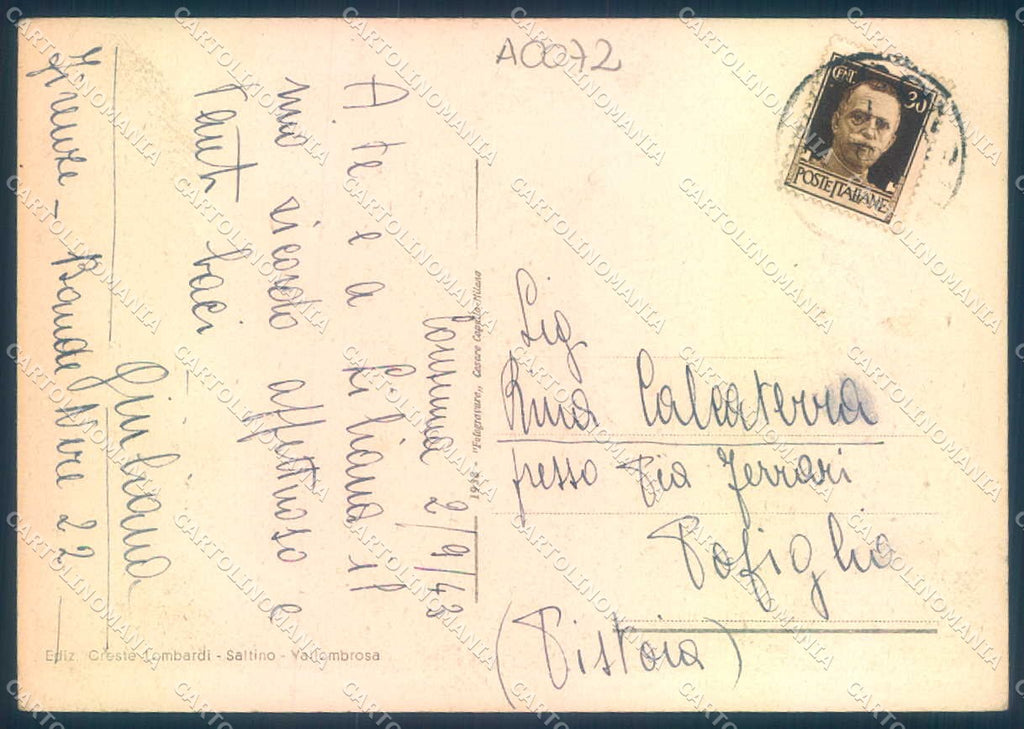 A0072
CENT. 30
POSTE ITALIANE
Consuma 2/9/43
A te e a Liliana il
mio ricordo affettuoso e
tanti baci
Giuliana
Firenze - Bande Nere 22
1938 - "Fotogravure" Cesare Capello - Milano
Sig
Rina Calcaterra
presso Pia Ferrari
Popiglio
(Pistoia)
Ediz. Oreste Lombardi - Saltino - Vallombrosa
CARTOLINOMANIA